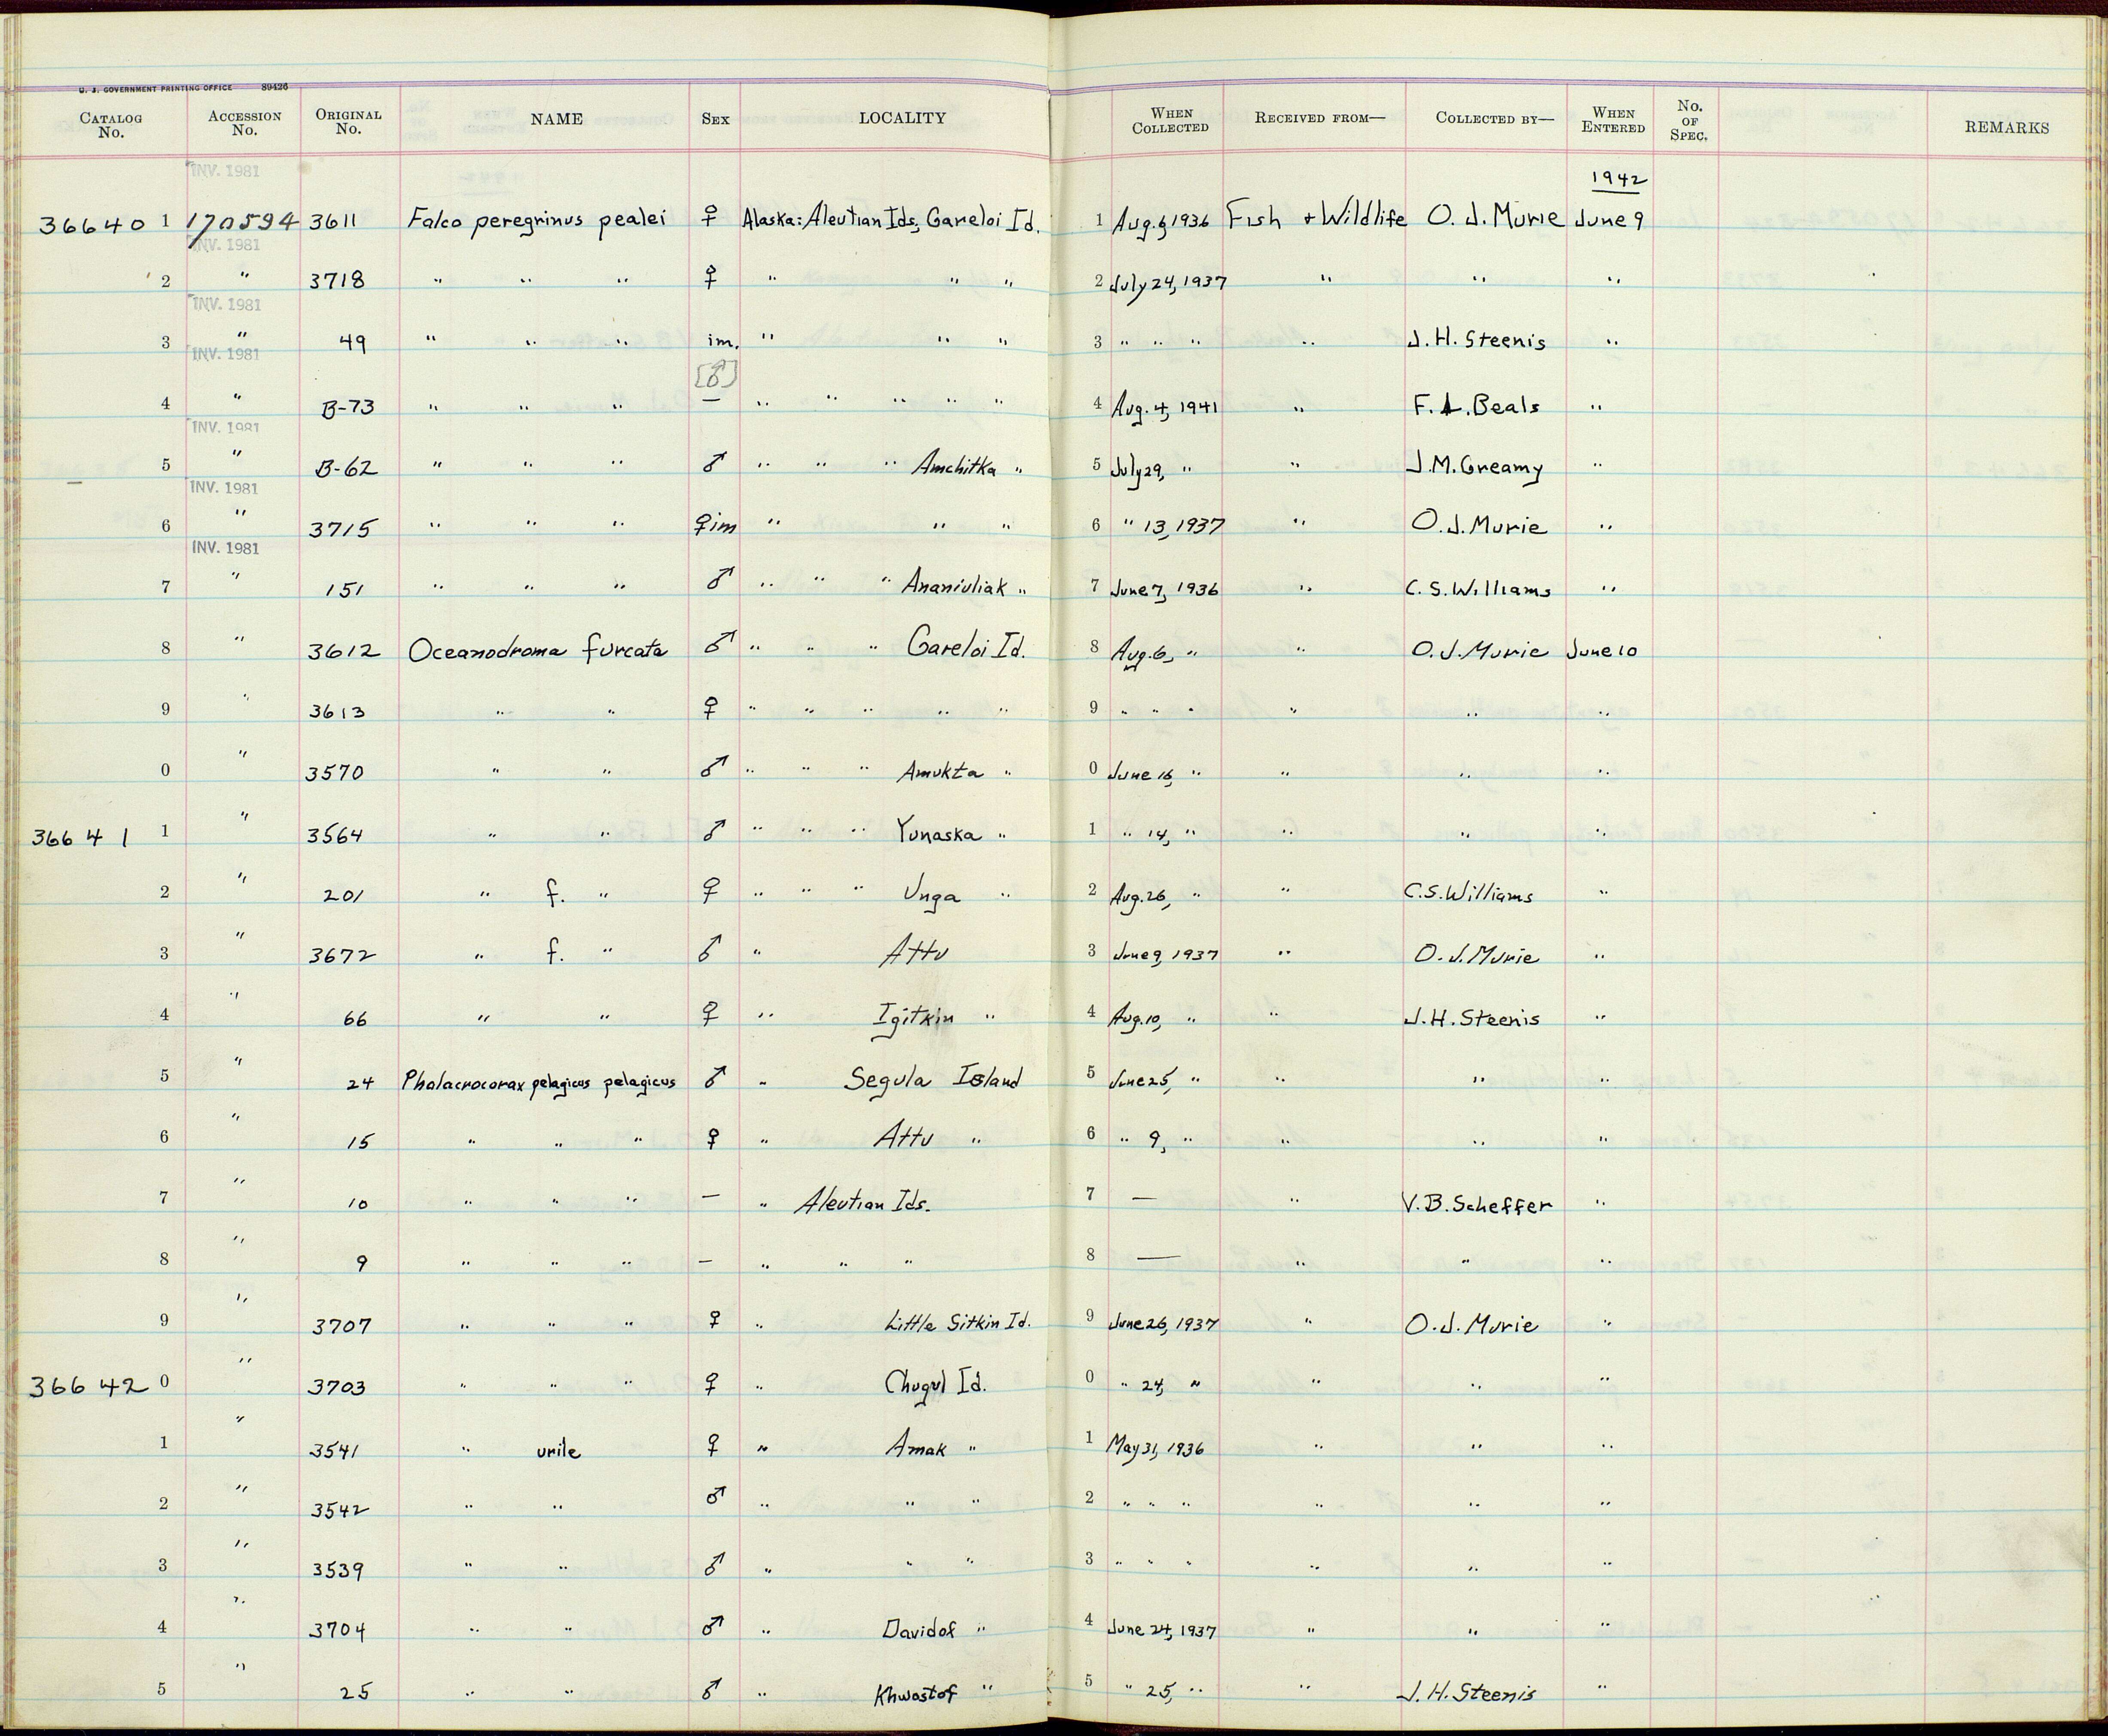 U. S. GOVERNMENT PRINTING OFFICE 89426
CATALOG No. ACCESSION No. ORIGINAL No. NAME SEX LOCALITY WHEN COLLECTED RECEIVED FROM— COLLECTED BY— WHEN ENTERED No. OF SPEC. REMARKS
INV. 1981
1942
36640 1 170594 3611 Falco peregrinus pealei ♀ Alaska: Aleutian Ids, Gareloi Id. 1 Aug. 6 1936 Fish + Wildlife O. J. Murie June 9
INV. 1981
2 " 3718 " " " ♀ " " " 2 July 24, 1937 " " "
INV. 1981
3 " 49 " " " im. " " " 3 " " " " J. H. Steenis "
INV. 1981
[♂]
4 " B-73 " " " — " " " " " 4 Aug. 4, 1941 " F. L. Beals "
INV. 1981
5 " B-62 " " " ♂ " " " Amchitka " 5 July 29, " " J. M. Greamy "
INV. 1981
6 " 3715 " " " ♀ im " " " 6 " 13, 1937 " O. J. Murie "
INV. 1981
7 " 151 " " " ♂ " " " Ananiuliak " 7 June 7, 1936 " C. S. Williams "
8 " 3612 Oceanodroma furcata ♂ " " " Gareloi Id. 8 Aug. 6, " " O. J. Murie June 10
9 " 3613 " " ♀ " " " " " 9 " " " " " "
0 " 3570 " " ♂ " " " Amukta " 0 June 16, " " " "
36641 1 " 3564 " " ♂ " " " Yunaska " 1 " 14, " " " "
2 " 201 " f. " ♀ " " " Unga " 2 Aug. 26, " " C. S. Williams "
3 " 3672 " f. " ♂ " Attu 3 June 9, 1937 " O. J. Murie "
4 " 66 " " ♀ " Igitkin " 4 Aug. 10, " " J. H. Steenis "
5 " 24 Phalacrocorax pelagicus pelagicus ♂ " Segula Island 5 June 25, " " " "
6 " 15 " " " ♀ " Attu " 6 " 9, " " " "
7 " 10 " " " — " Aleutian Ids. 7 — " V. B. Scheffer "
8 " 9 " " " — " " " 8 — " " "
9 " 3707 " " " ♀ " Little Sitkin Id. 9 June 26, 1937 " O. J. Murie "
36642 0 " 3703 " " " ♀ " Chugul Id. 0 " 24, " " " "
1 " 3541 " urile ♀ " Amak " 1 May 31, 1936 " " "
2 " 3542 " " ♂ " " " 2 " " " " " "
3 " 3539 " " ♂ " " " 3 " " " " " "
4 " 3704 " " ♂ " Davidof " 4 June 24, 1937 " " "
5 " 25 " " ♂ " Khwostof " 5 " 25, " " J. H. Steenis "